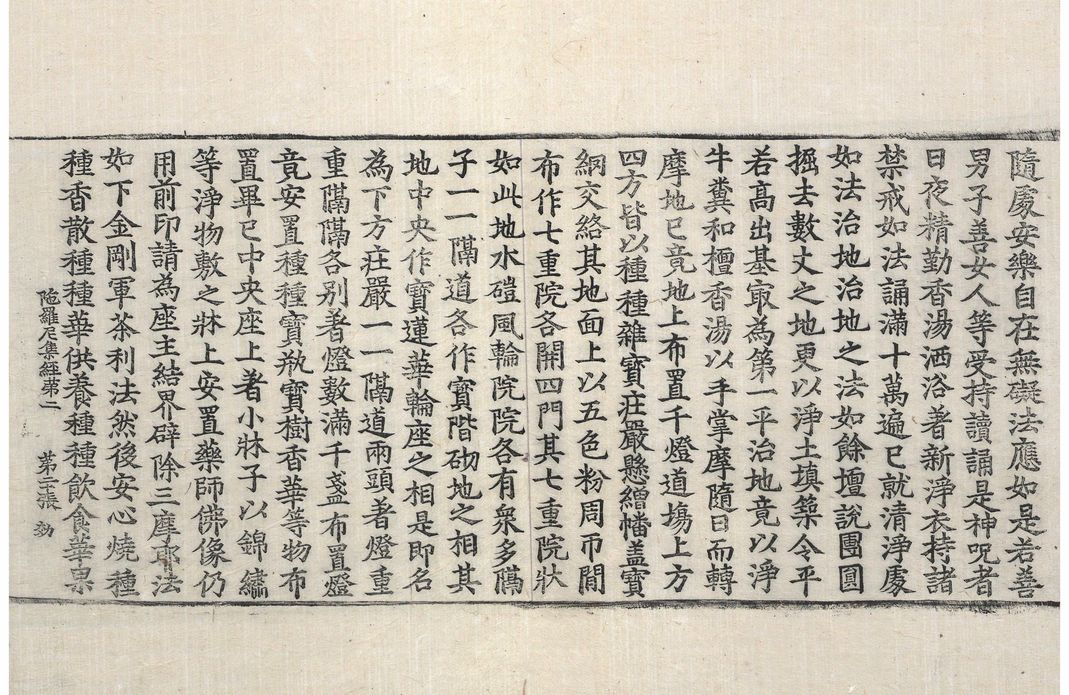 隨處安樂自在無礙法應如是若善
男子善女人等受持讀誦是神呪者
日夜精勤香湯洒浴著新淨衣持諸
禁戒如法誦滿十萬遍已就清淨處
如法治地治地之法如餘壇說團圓
掘去數丈之地更以淨土填築令平
若高出基㝡為第一平治地竟以淨
牛糞和檀香湯以手掌摩隨日而轉
摩地已竟地上布置千燈道場上方
四方皆以種種雜寶莊嚴懸繒幡盖寶
網交絡其地面上以五色粉周帀間
布作七重院各開四門其七重院狀
如此地水磑風輪院院各有衆多隔
子一一隔道各作寶階砌地之相其
地中央作寶蓮華輪座之相是即名
為下方莊嚴一一隔道兩頭著燈重
重隔隔各別著燈數滿千盞布置燈
竟安置種種寶瓶寶樹香華等物布
置畢已中央座上著小牀子以錦繡
等淨物敷之牀上安置藥師佛像仍
用前印請為座主結界辟除三摩耶法
如下金剛軍茶利法然後安心燒種
種香散種種華供養種種飲食華果
陁羅尼集經第二 第三張 効